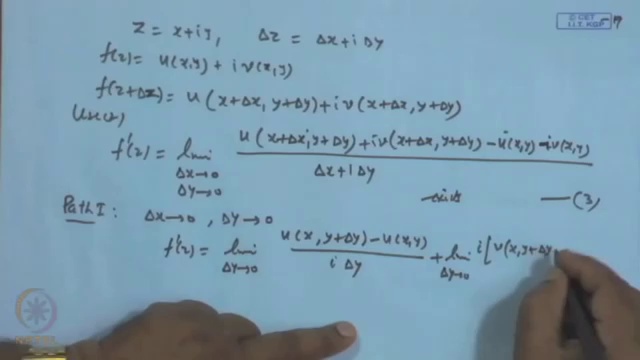 © CET
I.I.T. KGP
z = x+iy, Δz = Δx+iΔy
f(z) = u(x,y) + i v(x,y)
f(z+Δz) = u(x+Δx, y+Δy) + i v(x+Δx, y+Δy)
f'(z) = lim Δx→0 Δy→0 u(x+Δx, y+Δy) + iv(x+Δx, y+Δy) - u(x,y) - iv(x,y) / Δx+iΔy
—(3)
Path I: Δx→0, Δy→0
f'(z) = lim Δy→0 u(x, y+Δy) - u(x,y) / iΔy + lim Δy→0 i[v(x, y+Δy